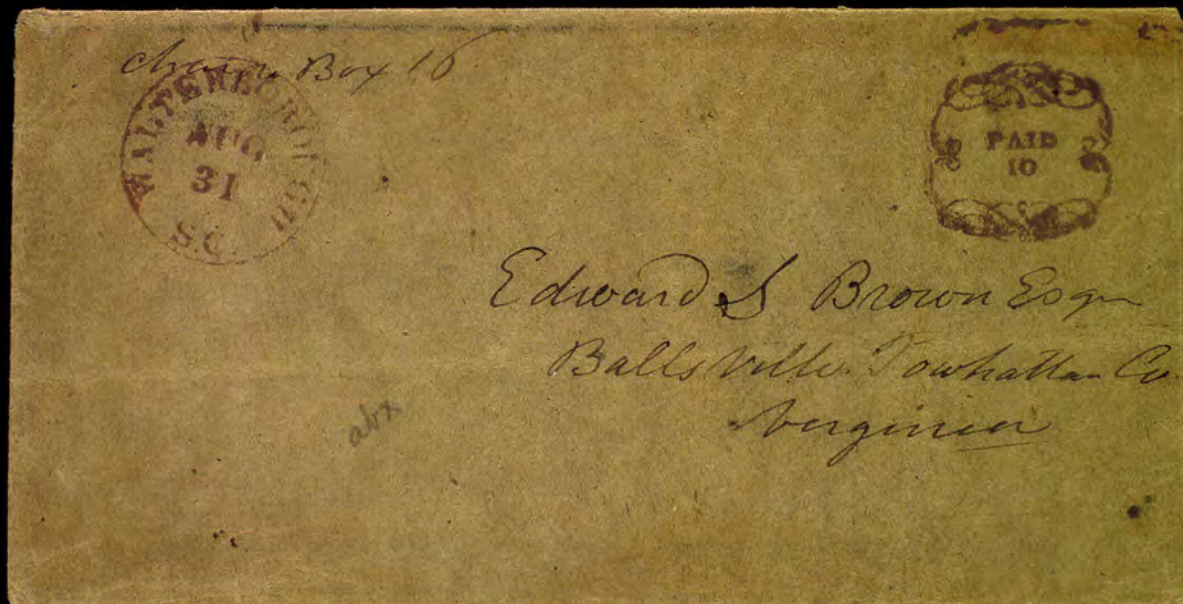 Box 10
WALTERBOROUGH
AUG
31
S.C.
PAID
10
Edward S Brown Esqr
BallsVille. Powhattan Co.
Verginia
abx